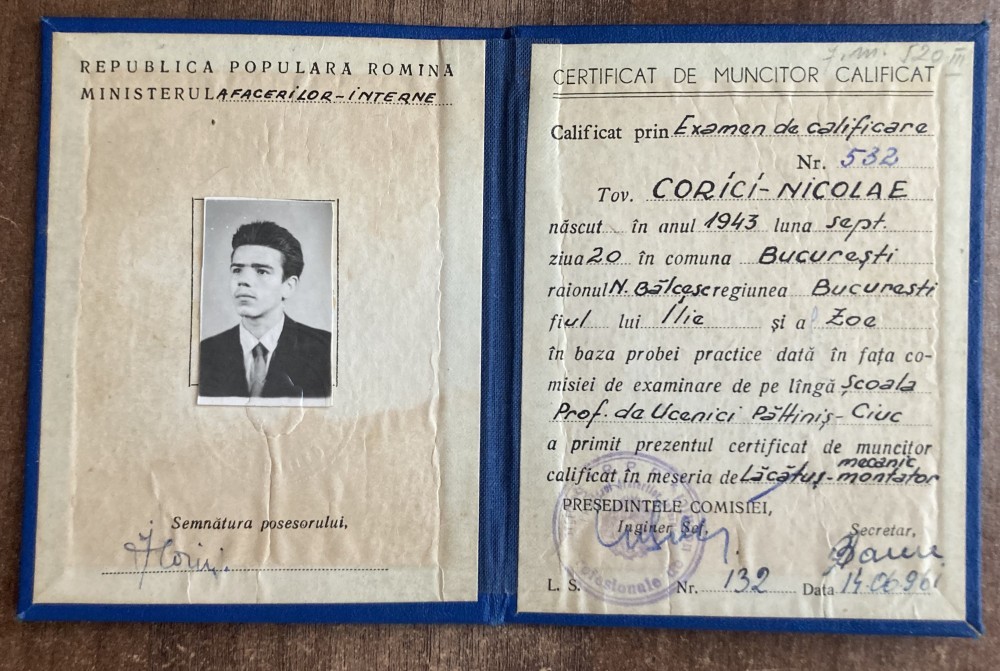 REPUBLICA POPULARA ROMINA
MINISTERUL AFACERILOR-INTERNE
Semnătura posesorului,
CERTIFICAT DE MUNCITOR CALIFICAT
Calificat prin Examen de calificare
Nr. 532
Tov. CORICI-NICOLAE
născut în anul 1943 luna sept.
ziua 20 în comuna București
raionul N. Bălcesc regiunea București
fiul lui Ilie și a Zoe
în baza probei practice dată în fața co-
misiei de examinare de pe lîngă Școala
Prof. de Ucenici Păltiniș-Ciuc
a primit prezentul certificat de muncitor
mecanic
calificat în meseria de Lăcătuș-montator
PREȘEDINTELE COMISIEI,
Inginer Șef,
Secretar,
L. S. Nr. 132 Data